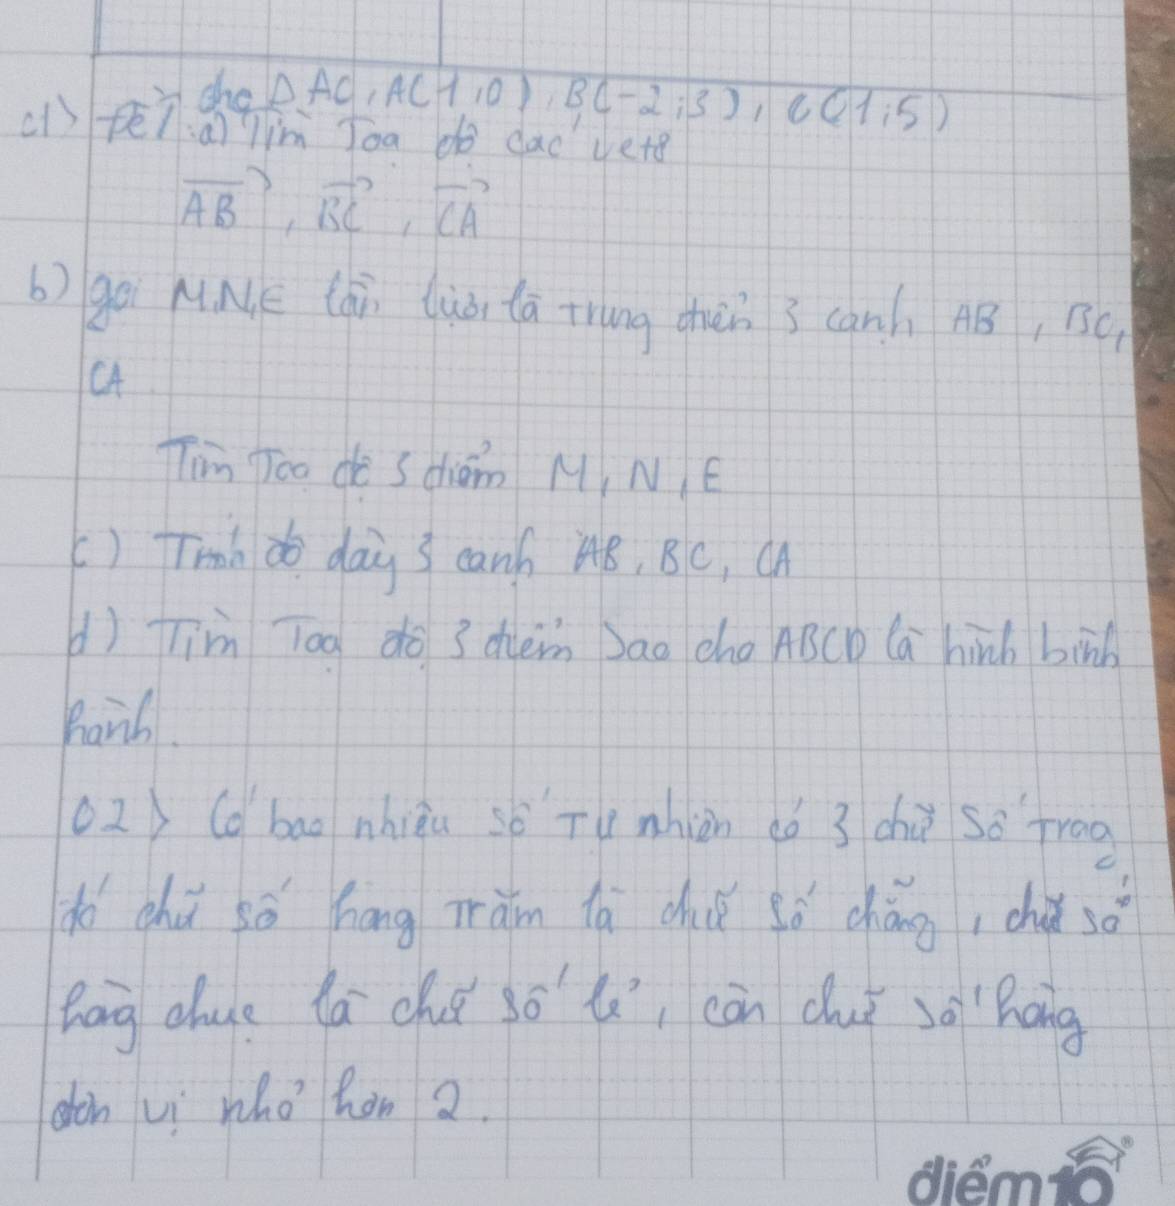 c1) Đề 1 cho Δ AC, A(1;0), B(-2;3), C(1;5)
a) Tìm Toạ độ các vetơ
AB, BC, CA
b) gọi M,N,E lần lượt là trung điểm 3 cạnh AB, BC,
CA
Tìm Toạ độ 3 điểm M, N, E
c) Tính độ dày 3 cạnh AB, BC, CA
d) Tìm Toạ độ 3 điểm Sao cho ABCD là hình bình
hành.
C2) Có bao nhiêu số Tự nhiên có 3 chữ Số Trong
đó chữ số hàng Trăm là chữ số chẵng, chữ số
hàng chục là chữ số lẻ, còn chữ số hàng
đơn vị nhỏ hơn 2.
điểm 10